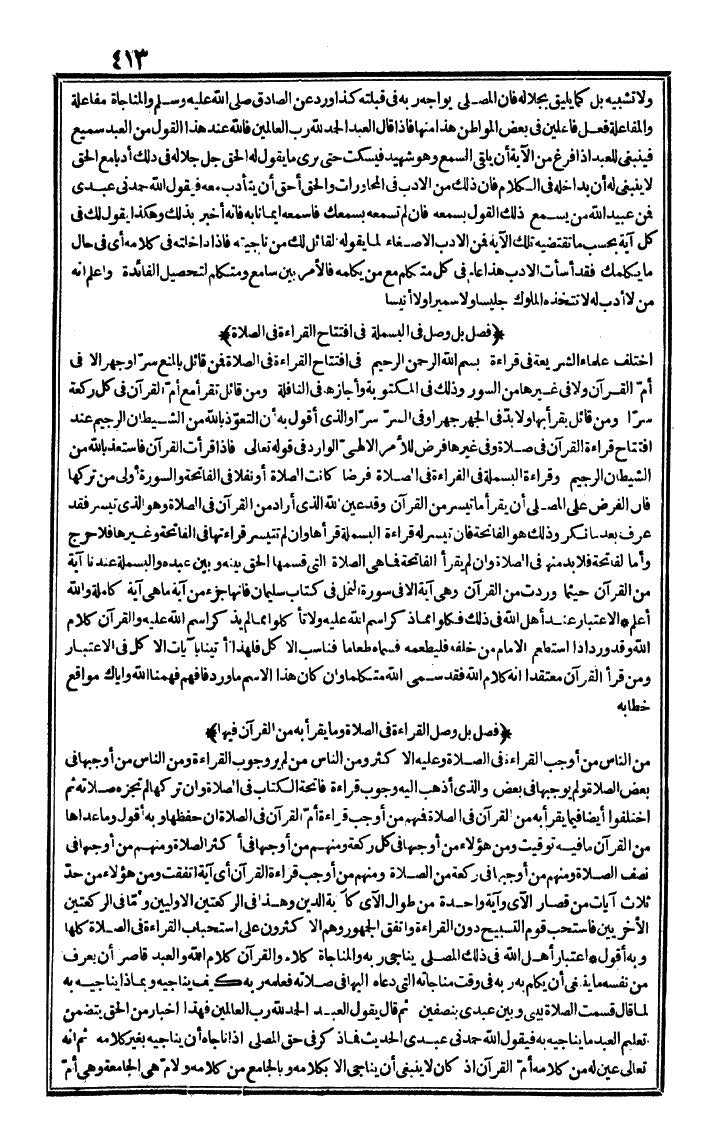 ٤١٣
ولا تشبيه بل كما يليق بجلاله فان المصلى يواجه ربه فى قبلته كذا ورد عن الصادق صلى الله عليه وسلم والمناجاة مفاعلة
والمفاعلة فعل فاعلين فى بعض المواطن هذا منها فاذا قال العبد الحمد لله رب العالمين فالله عند هذا القول من العبد سميع
فينبغى للعبد اذا فرغ من الآية أن يلقى السمع وهو شهيد فيسكت حتى يرى ما يقول له الحق جل جلاله فى ذلك أدبا مع الحق
لا ينبغى له أن يداخله فى الكلام فان ذلك من الادب فى المحاورات والحق أحق أن يتأدب معه فيقول الله حمدنى عبدى
فمن عبيد الله من يسمع ذلك القول بسمعه فان لم تسمعه بسمعك فاسمعه ايمانا به فانه أخبر بذلك وهكذا يقول لك فى
كل آية بحسب ما تقتضيه تلك الآية فمن الادب الاصغاء لما يقوله القائل لك من ناجيته فاذا داخلته فى كلامه أى فى حال
ما يكلمك فقد أسأت الادب هذا عام فى كل متكلم مع من يكلمه فالأمر بين سامع ومتكلم لتحصيل الفائدة واعلم انه
من لا أدب له لا تتخذه الملوك جليسا ولا سميرا ولا أنيسا
﴿فصل بل وصل فى البسملة فى افتتاح القراءة فى الصلاة﴾
اختلف علماء الشريعة فى قراءة بسم الله الرحمن الرحيم فى افتتاح القراءة فى الصلاة فمن قائل بالمنع سرّا وجهرا لا فى
أمّ القرآن ولا فى غيرها من السور وذلك فى المكتوبة وأجازه فى النافلة ومن قائل تقرأ مع أمّ القرآن فى كل ركعة
سرّا ومن قائل يقرأ بها ولا بدّ فى الجهر جهرا وفى السرّ سرّا والذى أقول به أن التعوّذ بالله من الشيطان الرجيم عند
افتتاح قراءة القرآن فى صلاة وفى غيرها فرض للأمر الالهىّ الوارد فى قوله تعالى فاذا قرأت القرآن فاستعذ بالله من
الشيطان الرجيم وقراءة البسملة فى القراءة فى الصلاة فرضا كانت الصلاة أو نفلا فى الفاتحة والسورة أولى من تركها
فان الفرض على المصلى أن يقرأ ما تيسر من القرآن وقد عين الله الذى أراد من القرآن فى الصلاة وهو الذى تيسر فقد
عرف بعد ما نكر وذلك هو الفاتحة فان تيسر له قراءة البسملة قرأها وان لم تتيسر قراءتها فى الفاتحة وغيرها فلا حرج
وأما الفاتحة فلا بد منها فى الصلاة وان لم يقرأ الفاتحة فما هى الصلاة التى قسمها الحق بينه وبين عبده والبسملة عندنا آية
من القرآن حيثما وردت من القرآن وهى آية الا فى سورة النمل فى كتاب سليمان فانها جزء من آية ما هى آية كاملة والله
أعلم * الاعتبار عند أهل الله فى ذلك فكلوا مما ذكر اسم الله عليه ولا تأكلوا مما لم يذكر اسم الله عليه والقرآن كلام
الله وقد ورد اذا استطعم الامام من خلفه فليطعمه فسماه طعاما فناسب الاكل فلهذا أتينا بآيات الاكل فى الاعتبار
ومن قرأ القرآن معتقدا انه كلام الله فقد سمى الله متكلما وان كان هذا الاسم ما ورد فافهم فهمنا الله واياك مواقع
خطابه
﴿فصل بل وصل القراءة فى الصلاة وما يقرأ به من القرآن فيها﴾
من الناس من أوجب القراءة فى الصلاة وعليه الاكثر ومن الناس من لم ير وجوب القراءة ومن الناس من أوجبها فى
بعض الصلاة ولم يوجبها فى بعض والذى أذهب اليه وجوب قراءة فاتحة الكتاب فى الصلاة وان تركها لم تجزه صلاته ثم
اختلفوا أيضا فيما يقرأ به من القرآن فى الصلاة فمنهم من أوجب قراءة أمّ القرآن فى الصلاة ان حفظها وبه أقول وما عداها
من القرآن ما فيه توقيت ومن هؤلاء من أوجبها فى كل ركعة ومنهم من أوجبها فى أكثر الصلاة ومنهم من أوجبها فى
نصف الصلاة ومنهم من أوجبها فى ركعة من الصلاة ومنهم من أوجب قراءة القرآن أى آية اتفقت ومن هؤلاء من حدّ
ثلاث آيات من قصار الآى وآية واحدة من طوال الآى كآية الدين وهذا فى الركعتين الاوليين وأمّا فى الركعتين
الأخريين فاستحب قوم التسبيح دون القراءة واتفق الجمهور وهم الاكثرون على استحباب القراءة فى الصلاة كلها
وبه أقول * اعتبار أهل الله فى ذلك المصلى يناجى ربه والمناجاة كلام والقرآن كلام الله والعبد قاصر أن يعرف
من نفسه ما ينبغى أن يكلم به ربه فى وقت مناجاته التى دعاه اليها فى صلاته فعلمه ربه كيف يناجيه وبماذا يناجيه به
لما قال قسمت الصلاة بينى وبين عبدى بنصفين ثم قال يقول العبد الحمد لله رب العالمين فهذا اخبار من الحق يتضمن
تعليم العبد ما يناجيه به فيقول الله حمدنى عبدى الحديث فما ذكر فى حق المصلى اذا ناجاه أن يناجيه بغير كلامه ثم انه
تعالى عين له من كلامه أمّ القرآن اذ كان لا ينبغى أن يناجى الا بكلامه وبالجامع من كلامه والامّ هى الجامعة وهى أمّ